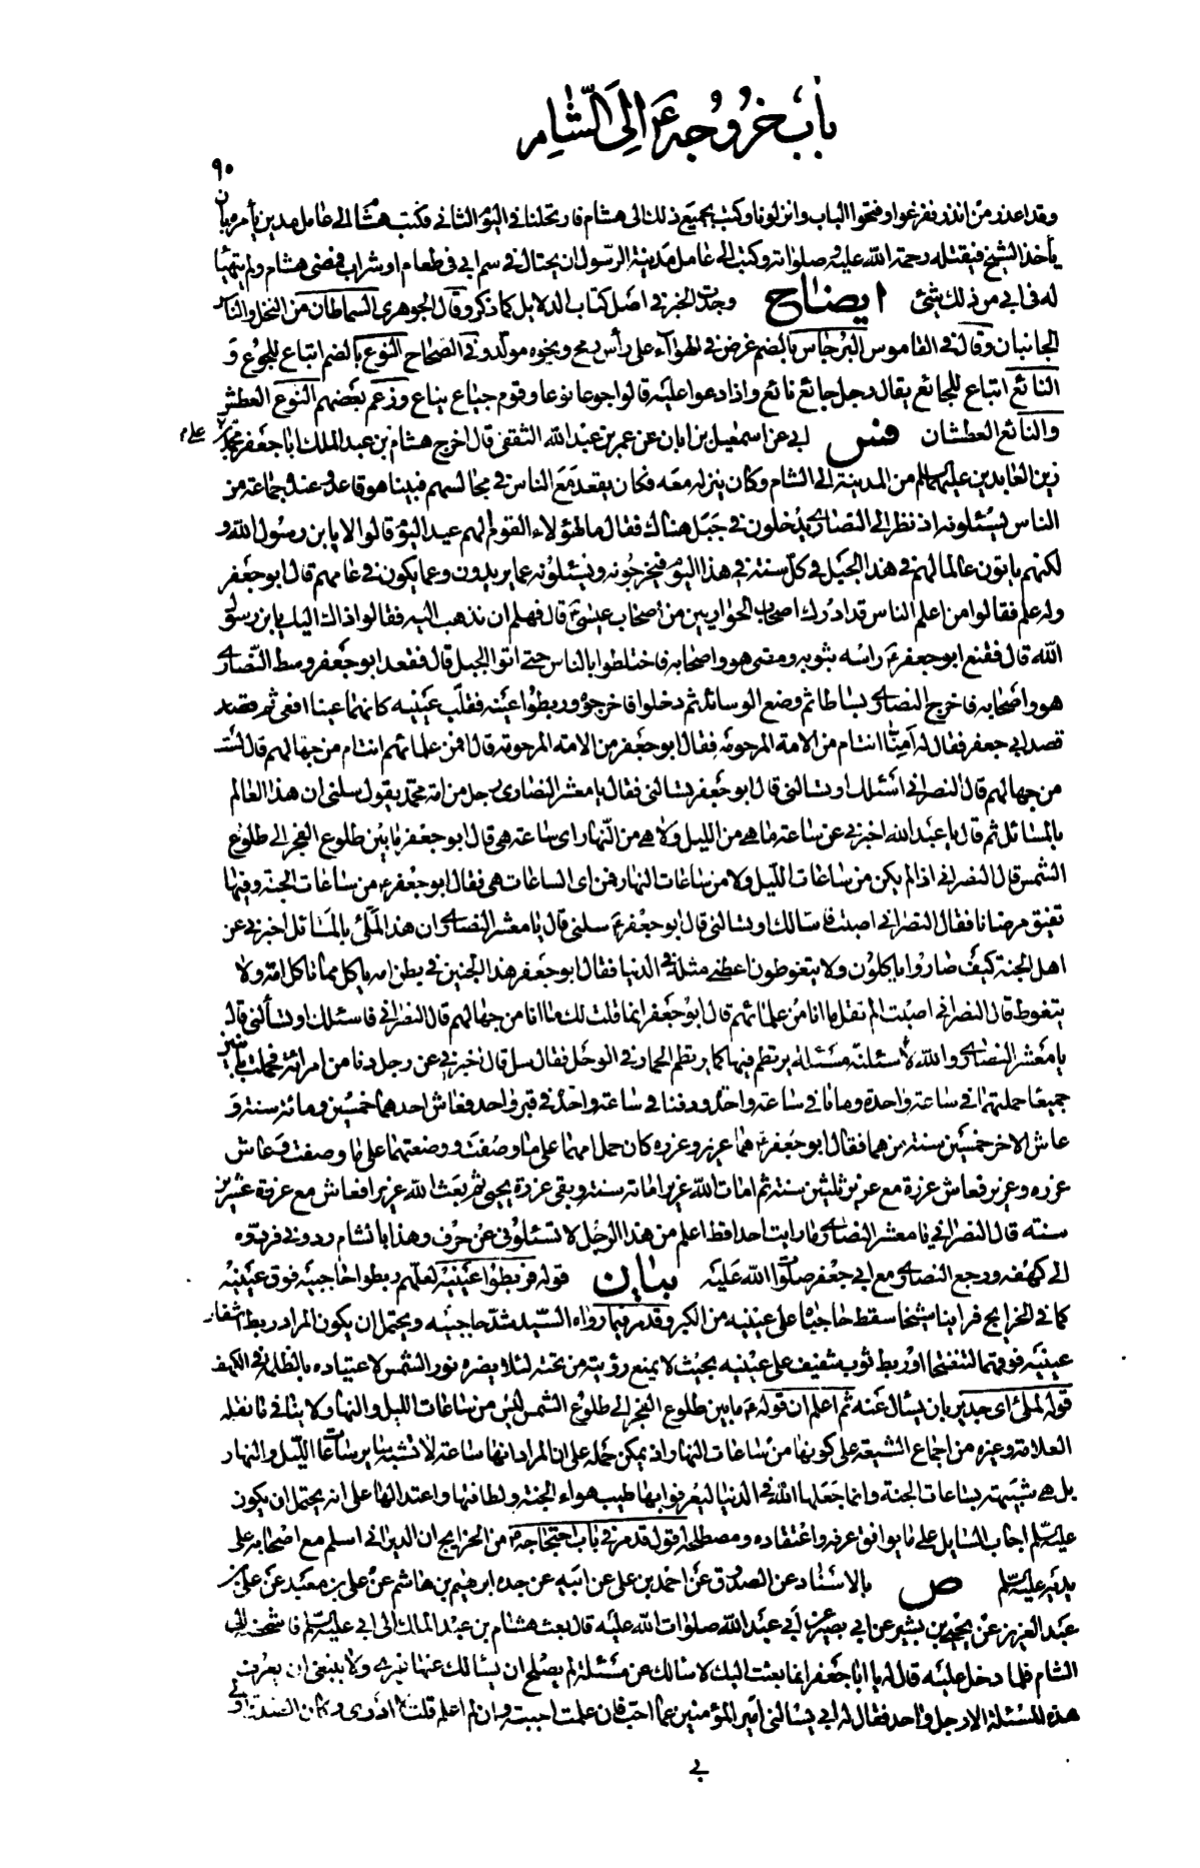 باب خروجه ع الى الشام
٩٠
وقد اعذر من انذر ففزعوا وفتحوا الباب وانزلونا وكتب بجميع ذلك الى هشام فارتحلنا في اليوم الثاني فكتب هشام الى عامل مدين يأمره بان
يأخذ الشيخ فيقتله رحمة الله عليه وصلواته وكتب الى عامل مدينة الرسول ان يحتال في سم ابي في طعام او شراب فمضى هشام ولم يتهيأ
له في ابي من ذلك شئ ايضاح وجدت الخبر في اصل كتاب الدلايل كما ذكر وقال الجوهري السماطان من النخل والناس
الجانبان وقال في القاموس البرجاس بالضم غرض في الهواء على رأس رمح ونحوه مولد وفي الصحاح النوع بالضم اتباع للجوع و
النائع اتباع للجائع يقال رجل جائع نائع واذا دعوا عليه قالوا جوعا نوعا وقوم جياع نياع وزعم بعضهم النوع العطش
والنائع العطشان فس ابي عن اسمعيل بن ابان عن عمر بن عبد الله الثقفي قال اخرج هشام بن عبد الملك ابا جعفر محمد بن علي
زين العابدين عليهما السلم من المدينة الى الشام وكان ينزله معه فكان يقعد مع الناس في مجالسهم فبينا هو قاعد وعنده جماعة من
الناس يسئلونه اذ نظر الى النصارى يدخلون في جبل هناك فقال ما لهؤلاء القوم الهم عيد اليوم قالوا لا يا بن رسول الله و
لكنهم ياتون عالما لهم في هذا الجبل في كل سنة في هذا اليوم فيخرجونه ويسئلونه عما يريدون وعما يكون في عامهم قال ابو جعفر
وله علم فقالوا من اعلم الناس قد ادرك اصحاب الحواريين من اصحاب عيسى ع قال فهلم ان نذهب اليه فقالوا ذاك اليك يا بن رسول
الله قال فقنع ابو جعفر ع راسه بثوبه ومضى هو واصحابه فاختلطوا بالناس حتى اتوا الجبل قال فقعد ابو جعفر وسط النصارى
هو واصحابه فاخرج النصارى بساطا ثم وضع الوسائد ثم دخلوا فاخرجوه وربطوا عينيه فقلب عينيه كانهما عينا افعى ثم قصد
قصد ابي جعفر فقال له امنا انت ام من الامة المرحومة فقال ابو جعفر من الامة المرحومة قال افمن علمائهم انت ام من جهالهم قال لست
من جهالهم قال النصراني اسئلك او تسالني قال ابو جعفر تسالني فقال يا معشر النصارى رجل من امة محمد يقول سلني ان هذا العالم
بالمسائل ثم قال يا عبد الله اخبرني عن ساعة ما هي من الليل ولا هي من النهار اى ساعة هي قال ابو جعفر ما بين طلوع الفجر الى طلوع
الشمس قال النصراني اذا لم يكن من ساعات الليل ولا من ساعات النهار فمن اى الساعات هي فقال ابو جعفر ع من ساعات الجنة وفيها
تفيق مرضانا فقال النصراني اصبت فاسالك او تسالني قال ابو جعفر ع سلني قال يا معشر النصارى ان هذا الملئ بالمسائل اخبرني عن
اهل الجنة كيف صاروا ياكلون ولا يتغوطون اعطني مثله في الدنيا فقال ابو جعفر هذا الجنين في بطن امه ياكل مما تاكل امه ولا
يتغوط قال النصراني اصبت الم تقل ما انا من علمائهم قال ابو جعفر انما قلت لك ما انا من جهالهم قال النصراني فاسئلك او تسألني قال
يا معشر النصارى والله لاسئلنه مسئلة يرتطم فيها كما يرتطم الحمار في الوحل فقال سل قال اخبرني عن رجل دنا من امراته فحملت بابنين
جميعا حملتهما في ساعة واحدة وماتا في ساعة واحدة ودفنا في ساعة واحدة في قبر واحد فعاش احدهما خمسين ومائة سنة و
عاش الاخر خمسين سنة من هما فقال ابو جعفر ع هما عزير وعزره كان حمل امهما على ما وصفت ووضعتهما على ما وصفت وعاش
عزره وعزير فعاش عزرة مع عزير ثلثين سنة ثم امات الله عزيرا مائة سنة وبقى عزرة يحيى ثم بعث الله عزيرا فعاش مع عزرة عشرين
سنة قال النصراني يا معشر النصارى ما رايت احدا قط اعلم من هذا الرجل لا تسئلوني عن حرف وهذا بالشام ردوني فردوه
الى كهفه ورجع النصارى مع ابي جعفر صلوات الله عليه بيان قوله فربطوا عينيه لعلهم ربطوا حاجبيه فوق عينيه
كما في الخرايج فراينا شيخا سقط حاجباه على عينيه من الكبر وقد مر فيما رواه السيد شد حاجبيه ويحتمل ان يكون المراد ربط اشفار
عينيه فوقهما لتنفتحا او ربط ثوب شفيف على عينيه بحيث لا يمنع رؤيته من تحته لئلا يضره نور الشمس لاعتياده بالظلمة في الكهف
قوله لملئ اى جدير بان يسال عنه ثم اعلم ان قوله ع ما بين طلوع الفجر الى طلوع الشمس ليس من ساعات الليل والنهار لا ينافي ما نقله
العلامة وغيره من اجماع الشيعة على كونها من ساعات النهار اذ يمكن حمله على ان المراد انها ساعة لا تشبه سائر ساعات الليل والنهار
بل هي شبيهة بساعات الجنة وانما جعلها الله في الدنيا ليعرفوا بها طيب هواء الجنة ولطافتها واعتدالها على انه يحتمل ان يكون
عليه السلم اجاب السايل على ما يوافق عرفه واعتقاده ومصطلحه اقول قد مر في باب احتجاجه ع من الخرايج ان الديراني اسلم مع اصحابه على
يديه عليه السلم ص بالاسناد عن الصدوق عن احمد بن علي عن ابيه عن جده ابراهيم بن هاشم عن علي بن معبد عن علي بن
عبد العزيز عن يحيى بن بشير عن ابي بصير عن ابي عبد الله صلوات الله عليه قال بعث هشام بن عبد الملك الى ابي عليه السلم فاشخصه الى
الشام فلما دخل عليه قال له يا ابا جعفر انما بعثت اليك لاسالك عن مسئلة لم يصلح ان يسالك عنها غيري ولا ينبغي ان يعرف
هذه المسئلة الا رجل واحد فقال له ابي يسالني امير المؤمنين عما احب فان علمت اجبته وان لم اعلم قلت لا ادري وكان الصدق اولى
بي